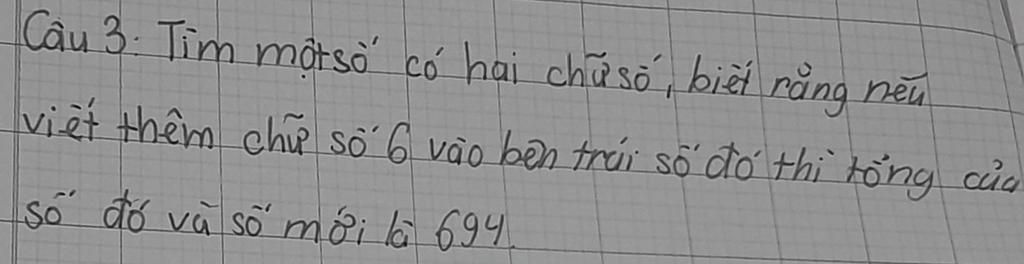 Câu 3. Tìm một số có hai chữ số, biết rằng nếu
viết thêm chữ số 6 vào bên trái số đó thì tổng của
số đó và số mới là 694.